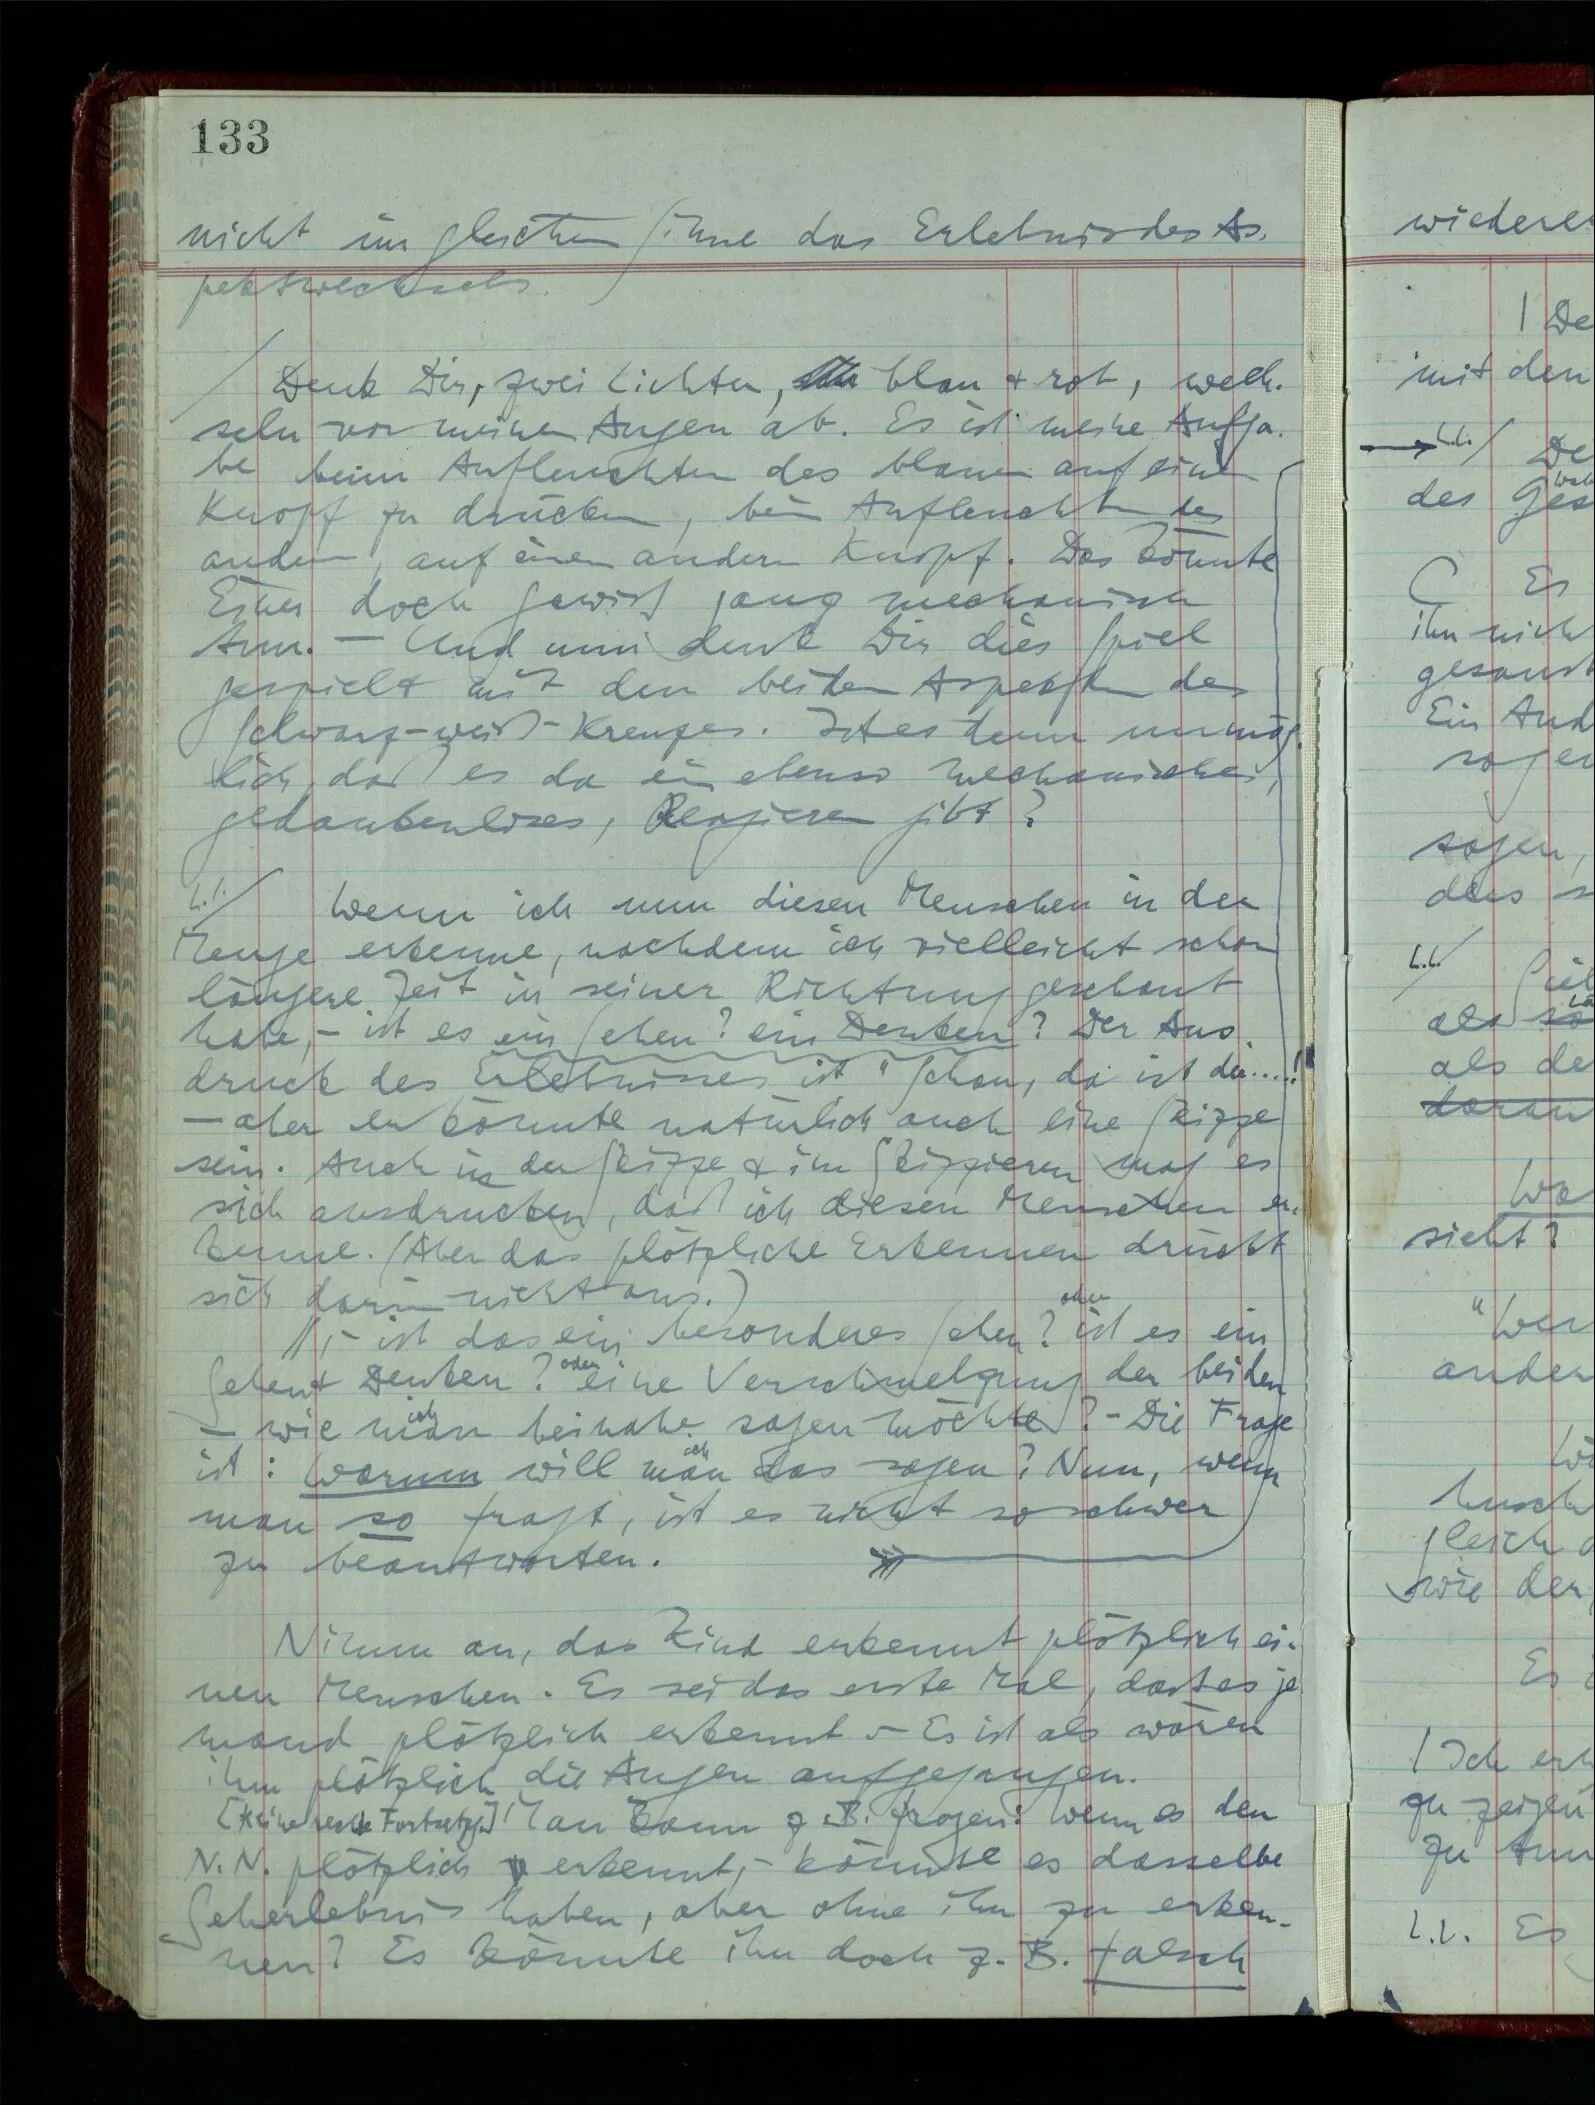 133
nicht im gleichen Sinne das Erlebnis des As-
pektwechsels.
/ Denk Dir, zwei Lichter, blau & rot, wech-
seln vor meinen Augen ab. Es ist meine Aufga-
be beim Aufleuchten des blauen auf einen
Knopf zu drücken, beim Aufleuchten des
andern, auf einen andern Knopf. Das könnte
Einer doch gewiß ganz mechanisch
tun. – Und nun denk Dir dies Spiel
gespielt mit den beiden Aspekten des
Schwarz-weiß-Kreuzes. Ist es denn unmög-
lich daß es da ein ebenso mechanisches,
gedankenloses, Reagieren gibt?
/ Wenn ich nun diesen Menschen in der
Menge erkenne, nachdem ich vielleicht schon
längere Zeit in seiner Richtung geschaut
habe, – ist es ein Sehen? ein Denken? Der Aus-
druck des Erlebnisses ist "Schau, da ist der.....!
– aber er könnte natürlich auch eine Skizze
sein. Auch in der Skizze & im Skizzieren mag es
sich ausdrücken, daß ich diesen Menschen er-
kenne. (Aber das plötzliche Erkennen drückt
sich darin nicht aus.)
//, – ist das ein besonderes Sehen? oder ist es ein
Sehen & Denken? oder eine Verschmelzung der beiden
– wie man ich beinahe sagen möchte? – Die Frage
ist: Warum will man ich das sagen? Nun, wenn
man so fragt, ist es nicht so schwer
zu beantworten.
Nimm an, das Kind erkennt plötzlich ei-
nen Menschen. Es sei das erste Mal, daß es je-
mand plötzlich erkennt – Es ist als wären
ihm plötzlich die Augen aufgegangen.
[Keine rechte Fortsetzg.] Man kann z.B. fragen: Wenn es den
N.N. plötzlich erkennt, – könnte es dasselbe
Seherlebnis haben, aber ohne ihn zu erken-
nen? Es könnte ihn doch z.B. falsch
wiederer
| De
mit den
/ De
des Ges
C Es
ihn nicht
gesamt
Ein And
sagen
sagen,
dies s
/
als
als de
daran
Wa
sieht?
"Wer
ander
husch
gleich
wie der
Es
| Ich erk
zu zeigen
zu tun
Es